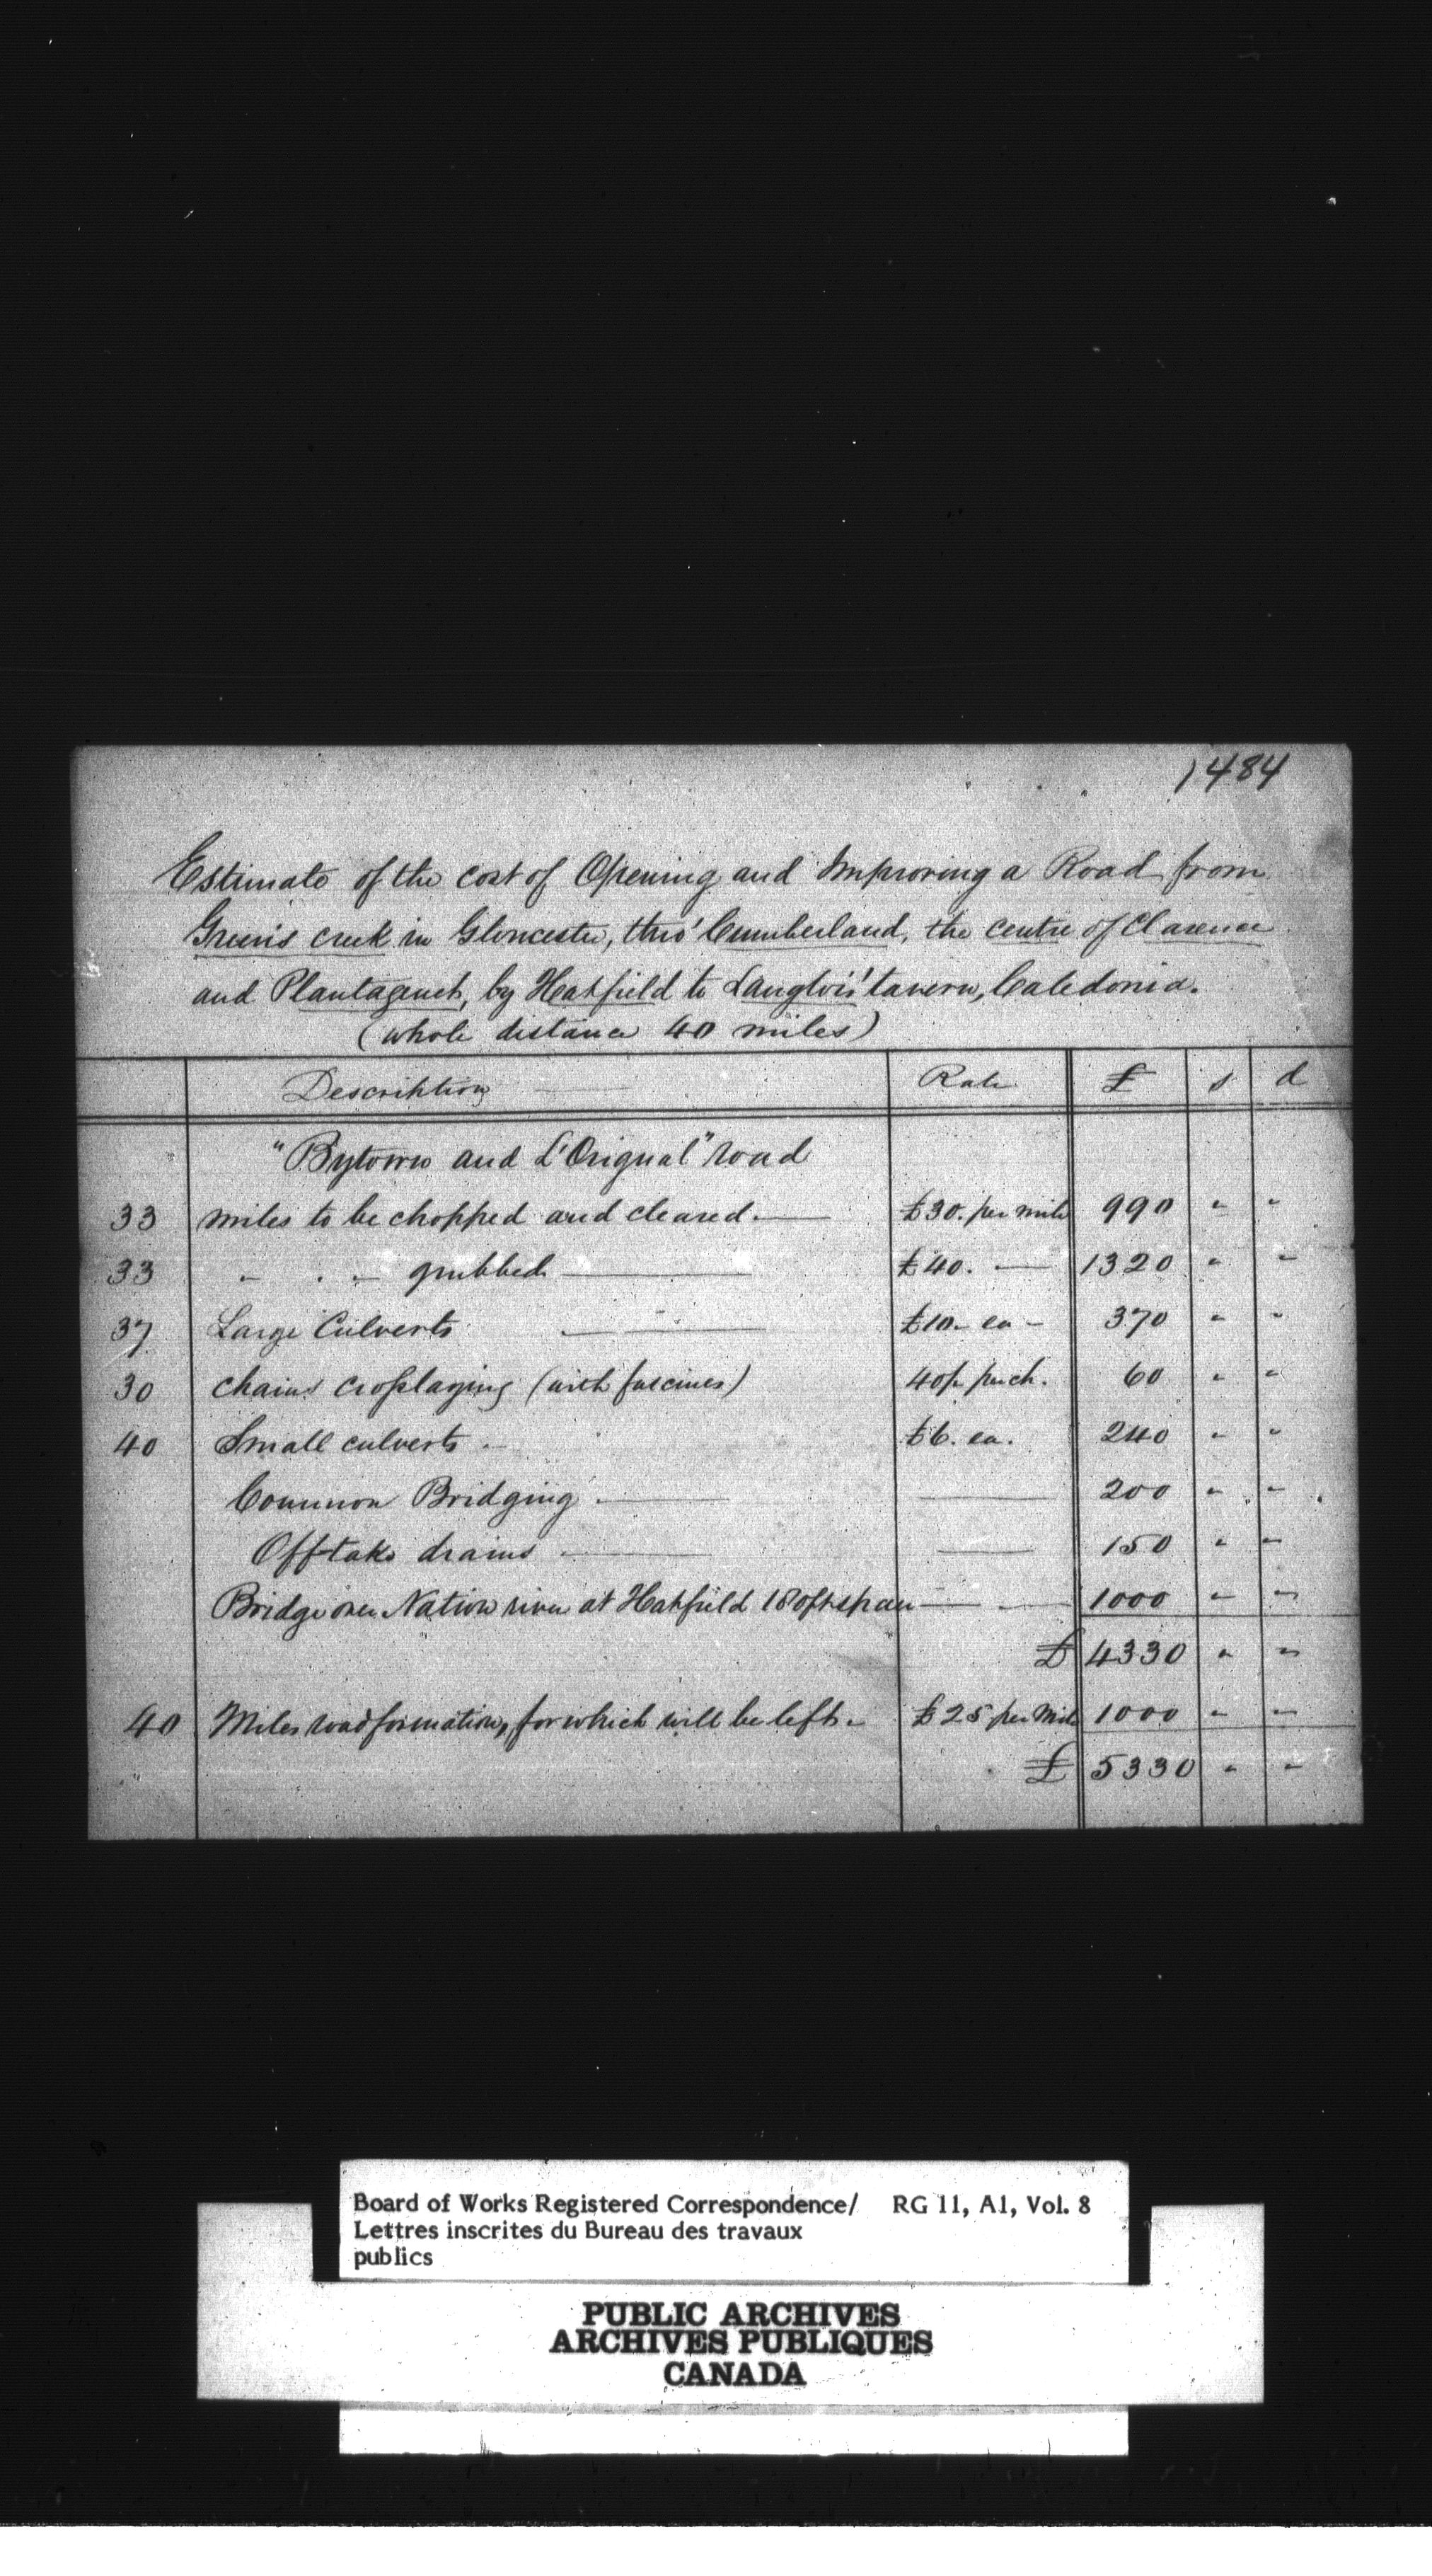 1484
Estimate of the cost of Opening and Improving a Road from
Green's creek in Gloucester, thro' Cumberland, the centre of Clarence
and Plantagenet, by Hatfield to Langlois' tavern, Caledonia.
(whole distance 40 miles)
Description Rate £ s d
"Bytown and L'Orignal" road
33 miles to be chopped and cleared. — £30. per mile 990 " "
33 " " " grubbed — £40. — 1320 " "
37 Large Culverts — £10 - ea - 370 " "
30 chains crosslaying (with fascines) 40/- per ch. 60 " "
40 Small culverts - £6. ea. 240 " "
Common Bridging — — 200 " "
Offtake drains — — 150 " "
Bridge over Nation river at Hatfield 180 ft span — — 1000 " "
£ 4330 " "
40 Miles road formation, for which will be left - £25 per Mile 1000 " "
£ 5330 " "
Board of Works Registered Correspondence/ RG 11, A1, Vol. 8
Lettres inscrites du Bureau des travaux
publics
PUBLIC ARCHIVES
ARCHIVES PUBLIQUES
CANADA